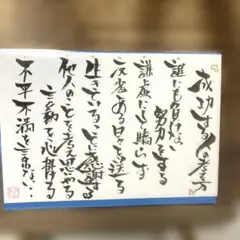 成功する人の考え方
誰にも負けない
努力をする
謙虚にして驕らず
反省ある日々を送る
生きていることに感謝する
他人のことを思いやる
言動を心掛ける
不平不満を言わない